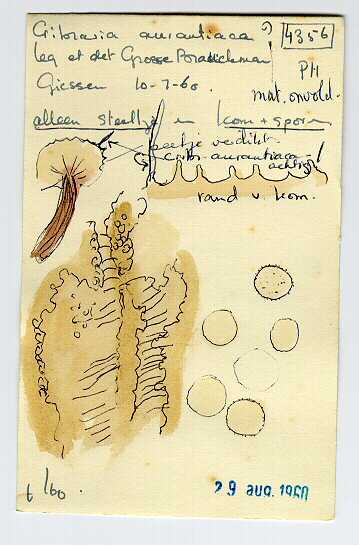 Cribraria aurantiaca ? 4356
leg et det Grosse
Giessen 10-7-60. PH
mat. onvold.
alleen steeltje en kom + sporen
beetje verdikt
aurantiaca
rand v. kom.
t 1/60.
29 AUG. 1960